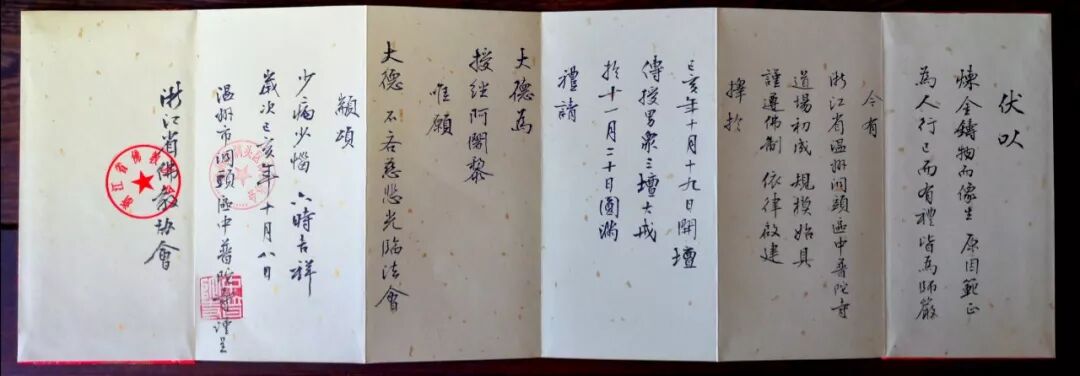 伏以
煉金鑄物而像生 原因範正
為人行己而有禮 皆為師嚴
今有
浙江省温州洞頭區中普陀寺
道場初成 規模始具
謹遵佛制 依律啟建
擇於
己亥年十月十九日開壇
傳授男眾三壇大戒
於十一月二十日圓滿
禮請
大德為
授經阿闍黎
惟願
大德 不吝慈悲光臨法會
顓頌
少病少惱 六時吉祥
歲次己亥年十月八日
温州市洞頭區中普陀寺謹呈
浙江省佛教協會
浙江省佛教协会